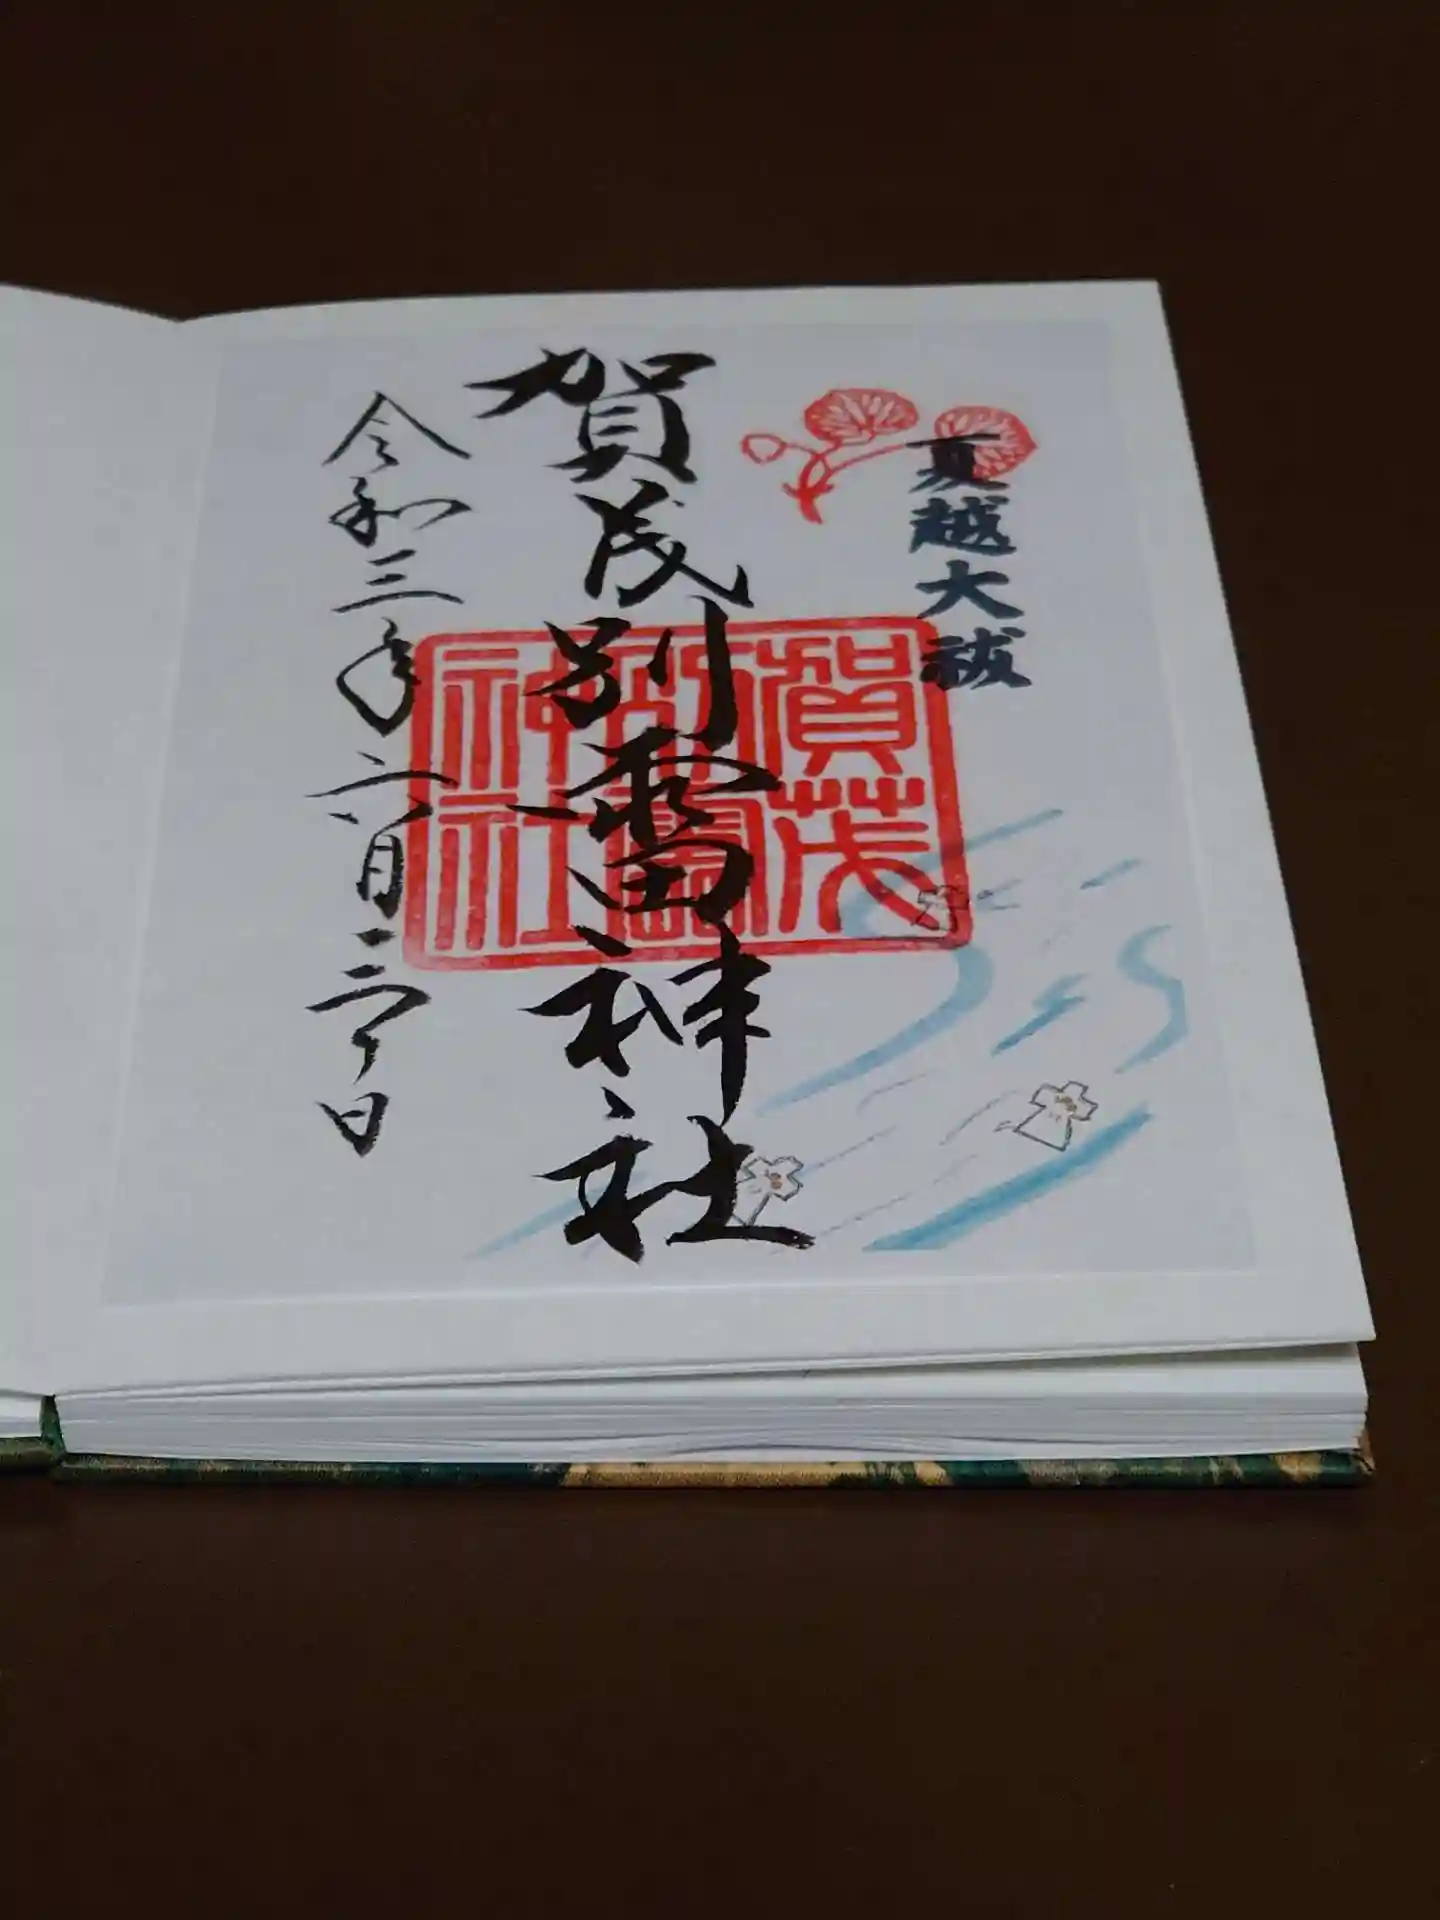 夏越大祓
賀茂別雷神社
賀茂別雷神社
令和三年六月三十日